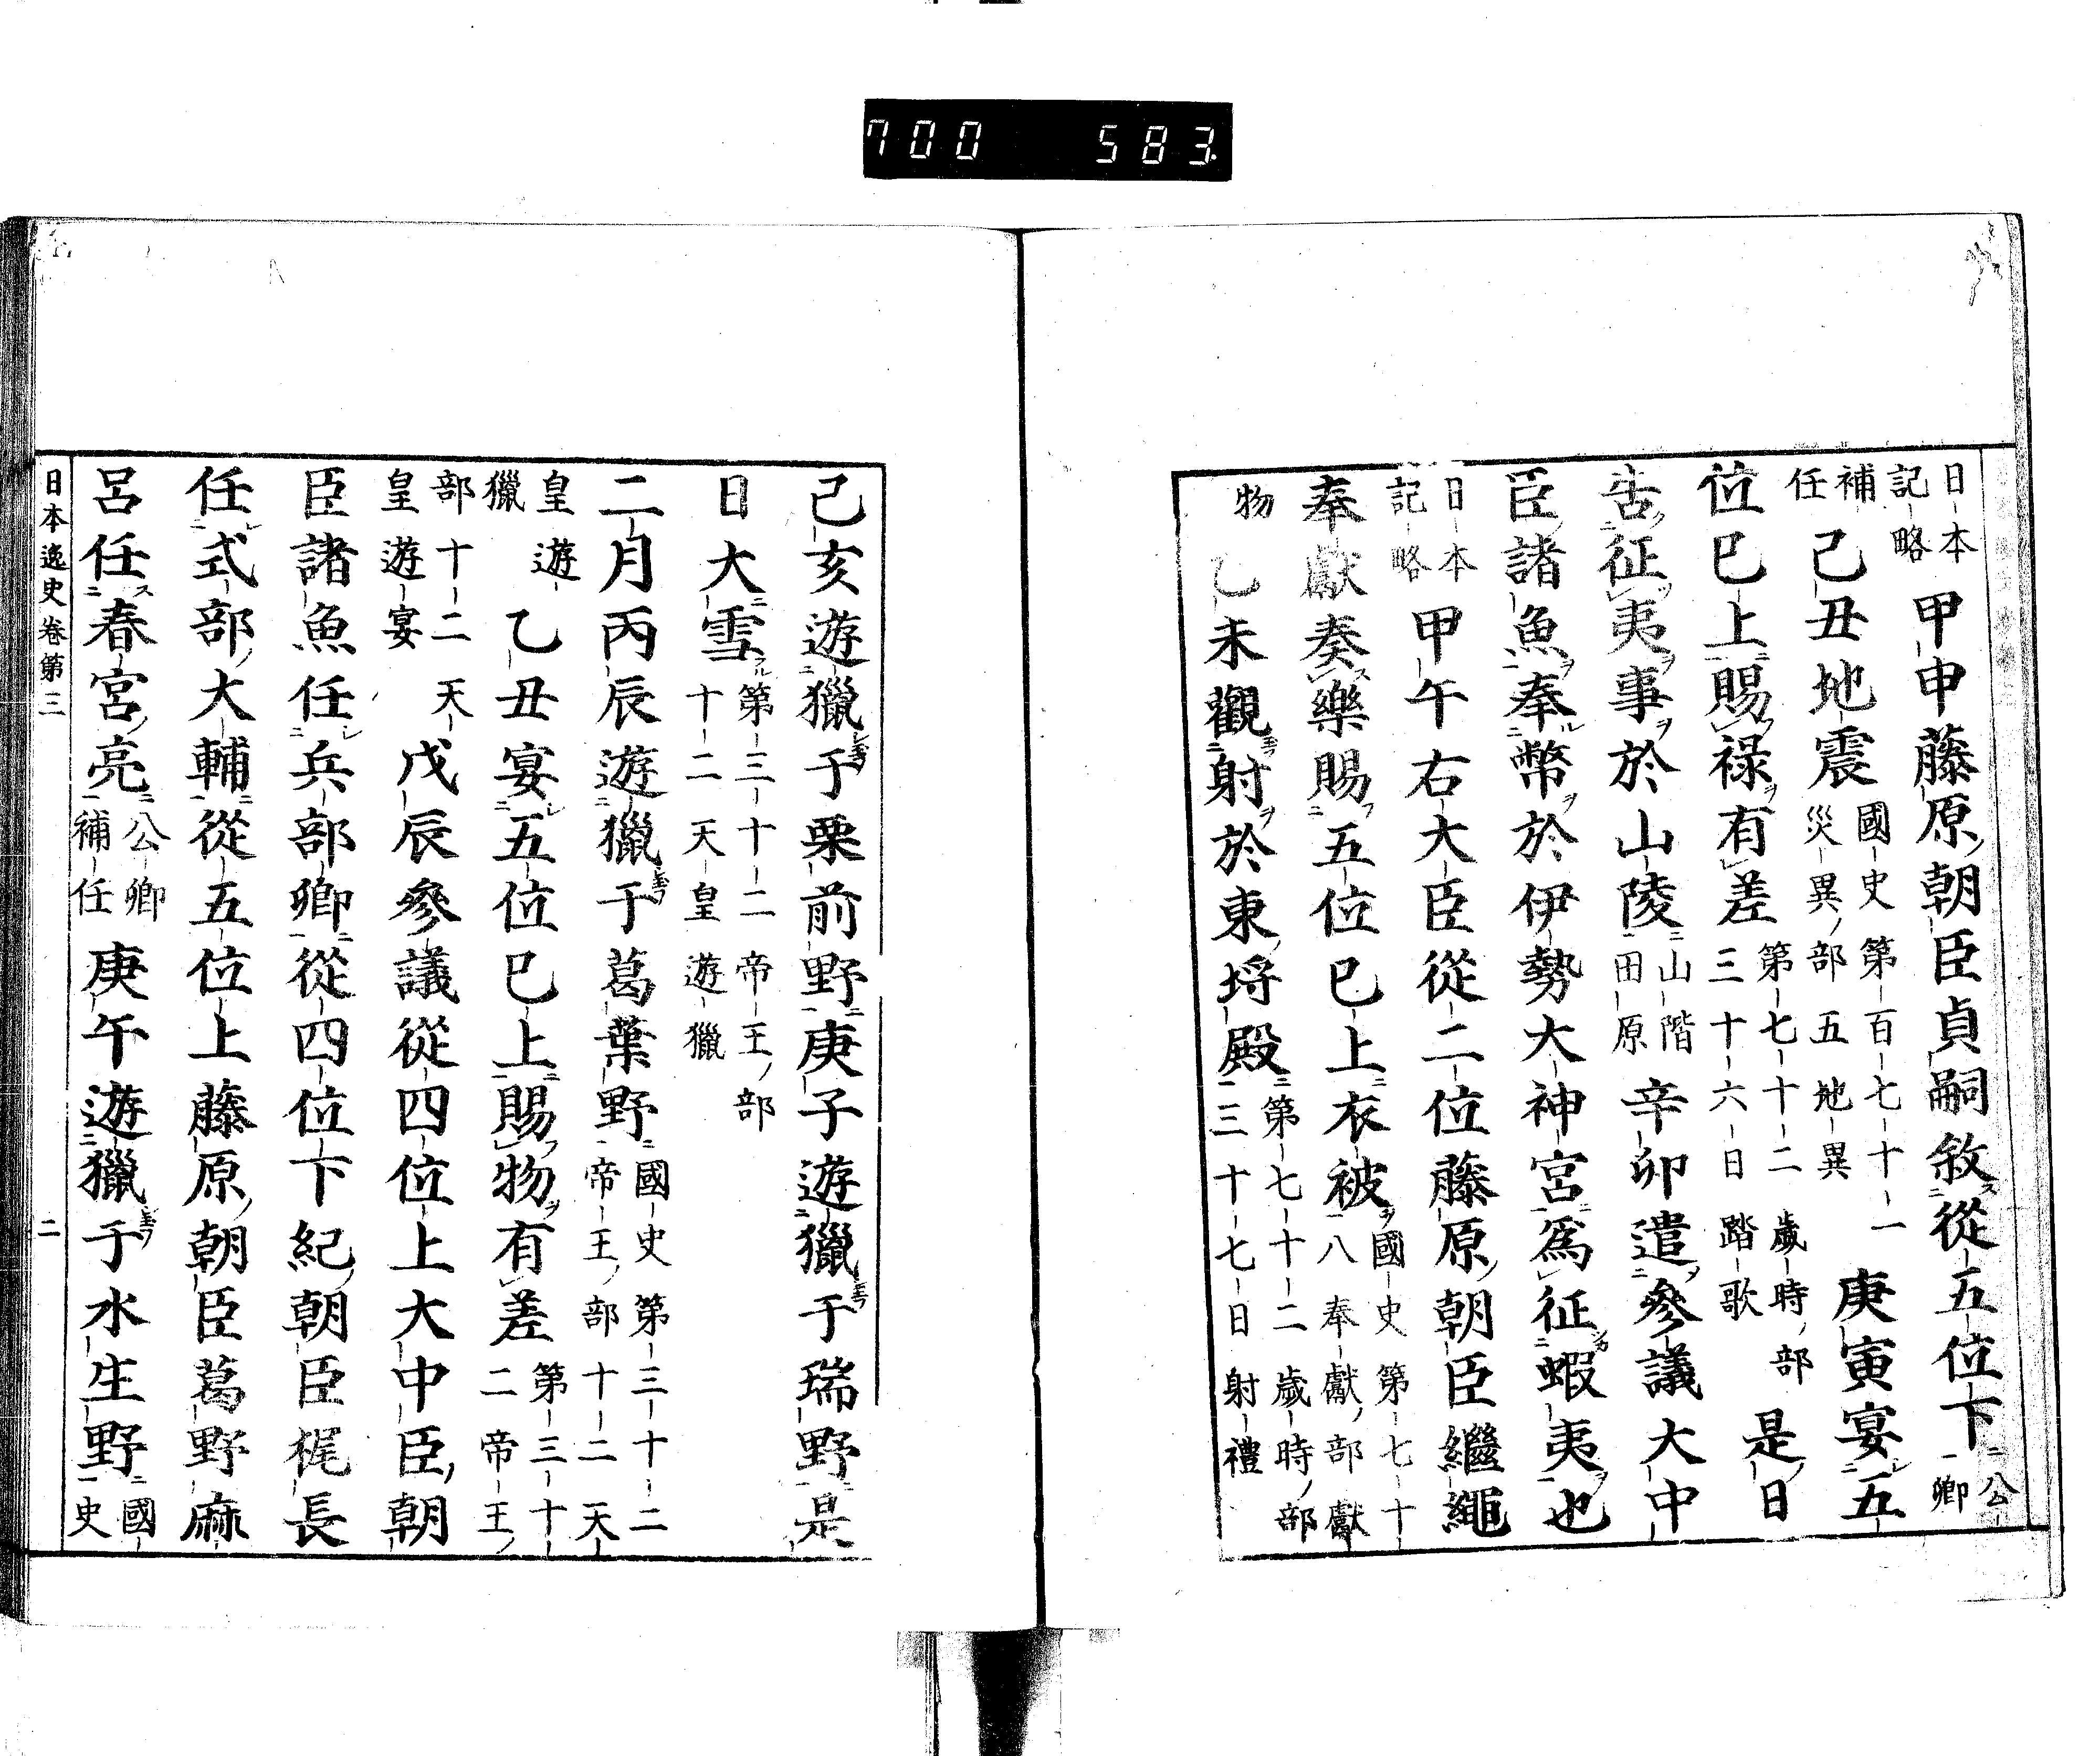 700 583
日本記略甲申藤原朝臣貞嗣敘從五位下公卿
補任己丑地震國史第百七十一災異部五地異庚寅宴五
位已上賜祿有差第七十二歲時部三十六日踏歌是日
告征夷事於山陵山階田原辛卯遣參議大中
臣諸魚奉幣於伊勢大神宮爲征蝦夷也
日本記略甲午右大臣從二位藤原朝臣繼繩
奉獻奏樂賜五位已上衣被國史第七十八奉獻部獻
物乙未觀射於東埒殿第七十二歲時部三十七日射禮
己亥遊獵于栗前野庚子遊獵于瑞野是
日大雪第三十二帝王部十二天皇遊獵
二月丙辰遊獵于葛葉野國史第三十二帝王部十二天
皇遊獵乙丑宴五位已上賜物有差第三十二帝王
部十二天皇遊宴戊辰參議從四位上大中臣朝
臣諸魚任兵部卿從四位下紀朝臣梶長
任式部大輔從五位上藤原朝臣葛野麻
呂任春宮亮公卿補任庚午遊獵于水生野國史
日本逸史卷第三 二